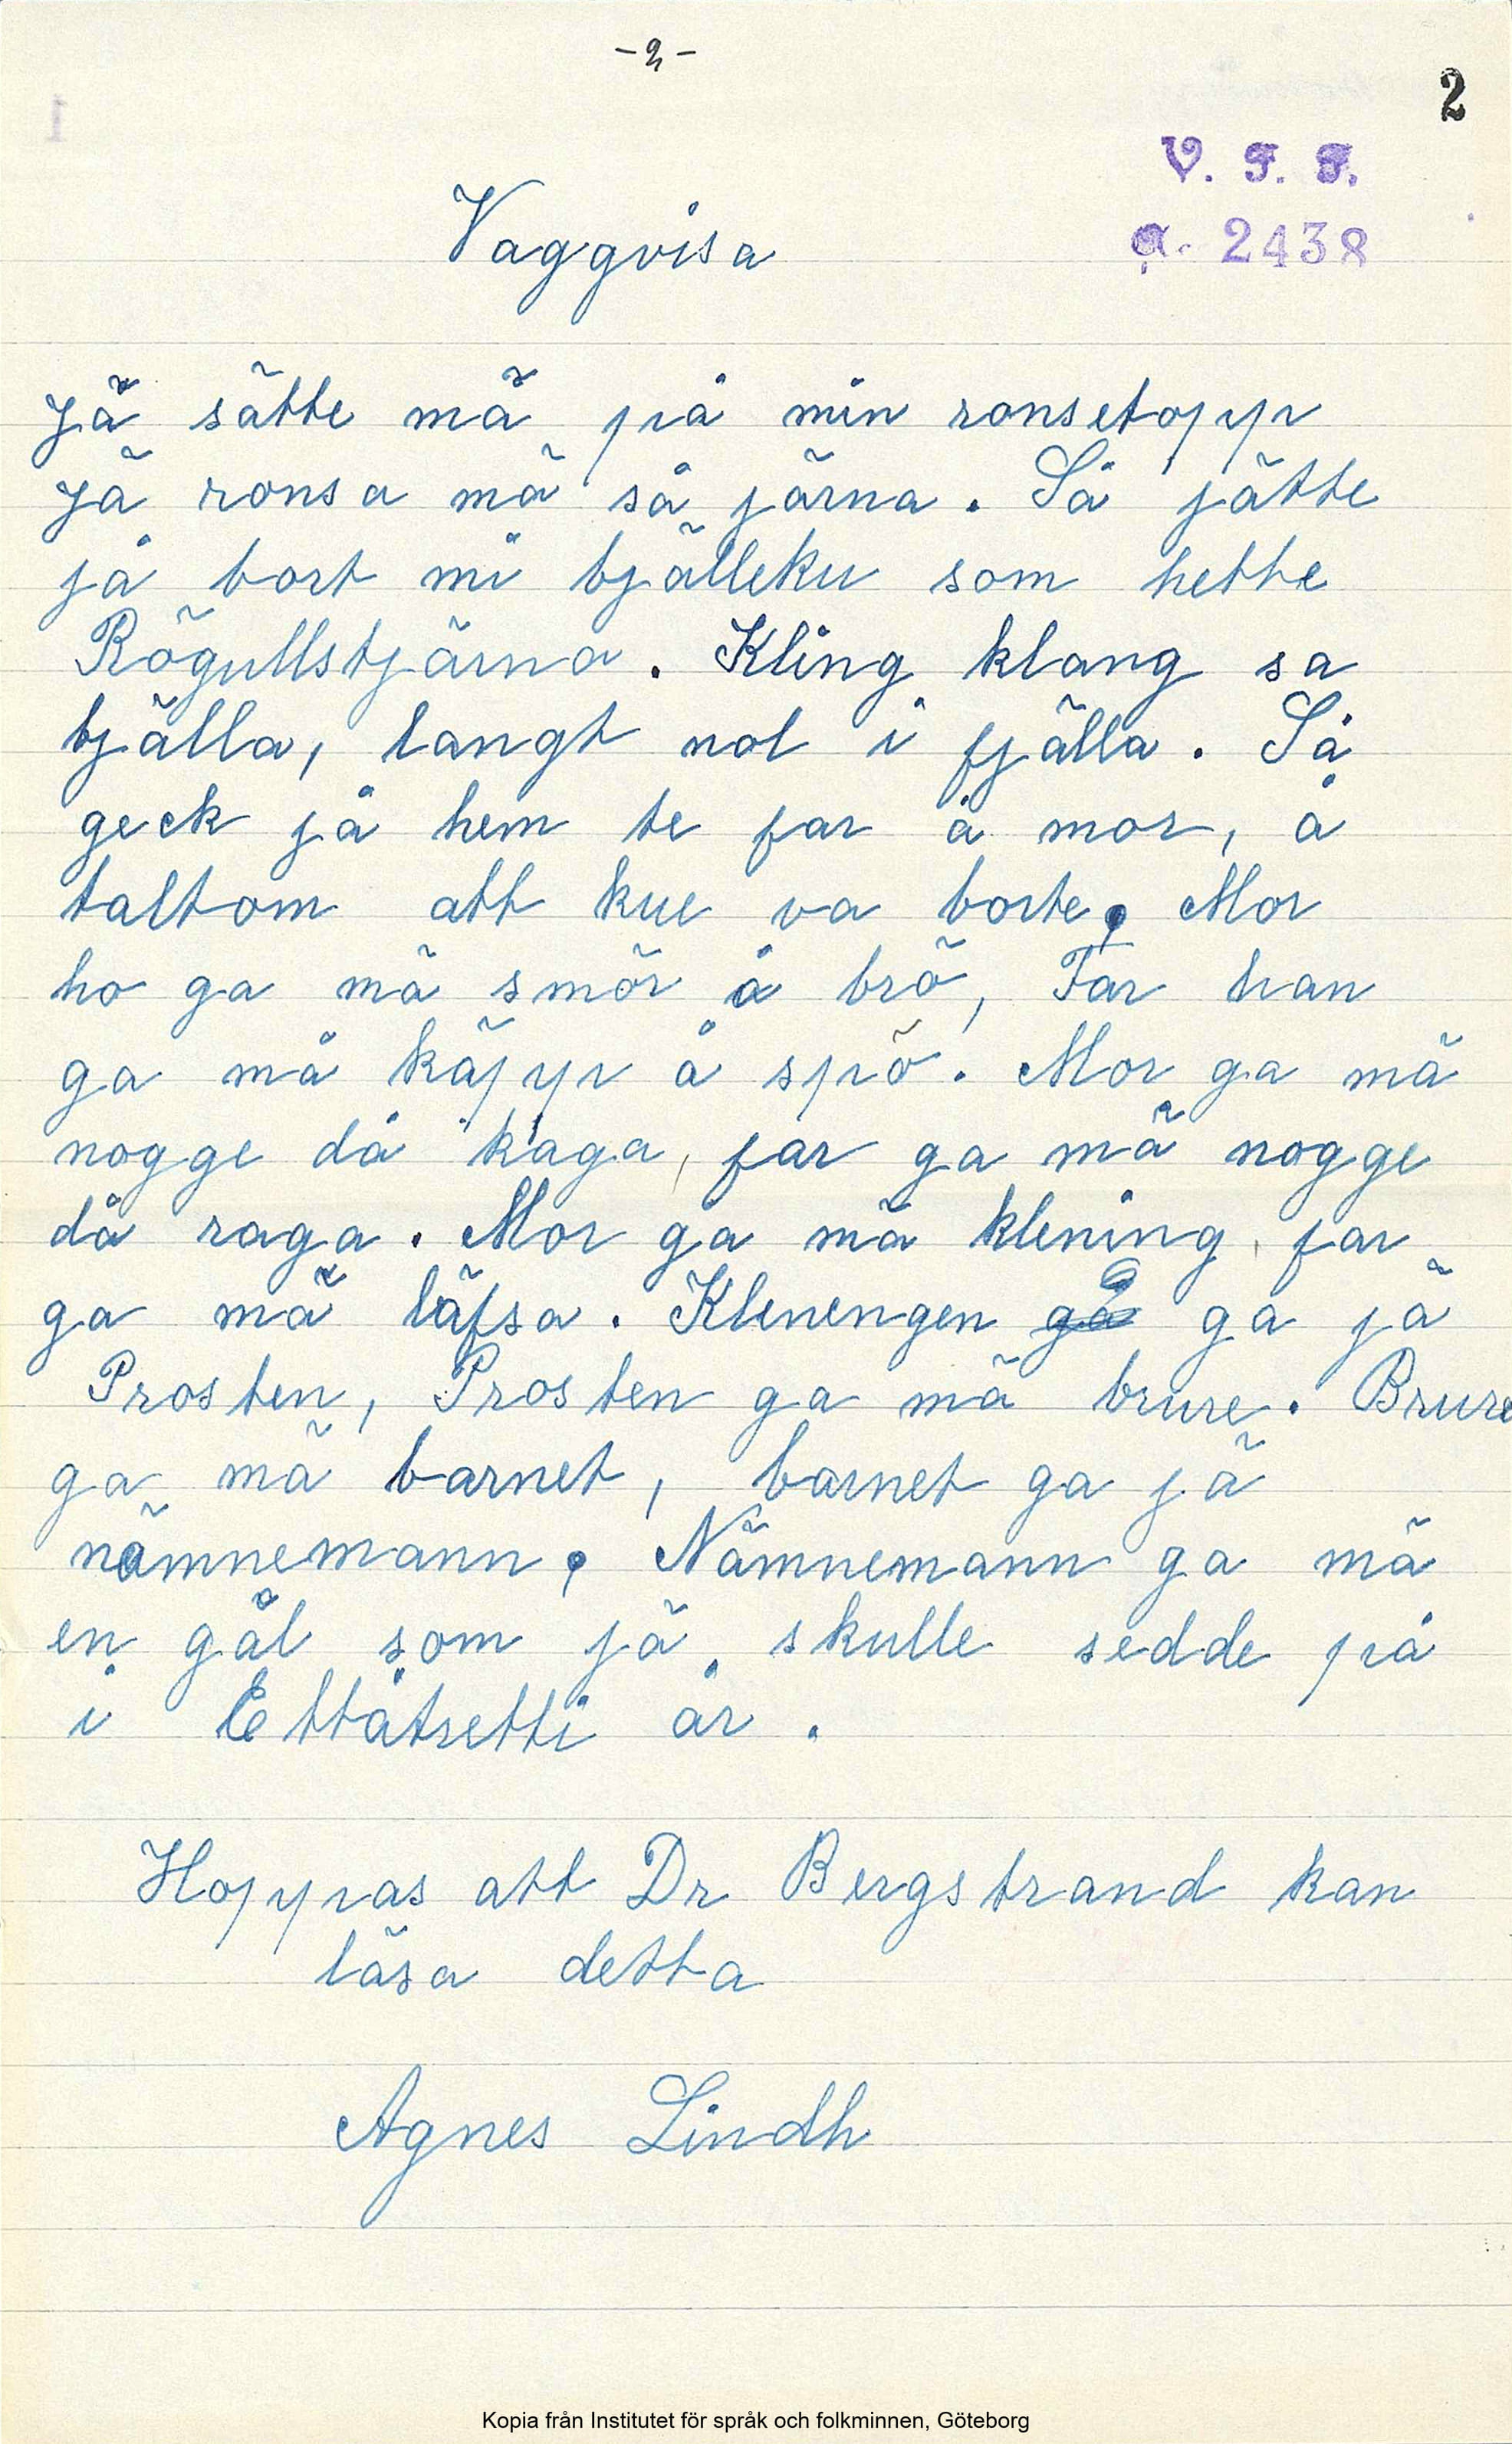 -2-
2
V. F. F.
a. 2438
Vaggvisa
Jä sätte mä på min ronsetopp
Jä ronsa mä så järna. Så jätte
jå bort mi bjälleku som hette
Rögullstjärna. Kling klang sa
bjälla, langt nol i fjälla. Så
geck jå hem te far å mor, å
taltom att kue va borte. Mor
ho ga mä smör å brö, Far han
ga må käpp å spö. Mor ga mä
nogge då kaga, far ga mä nogge
då raga. Mor ga mä klening, far
ga mä läfsa. Klenengen ga jä
Prosten, Prosten ga mä brure. Brure
ga mä barnet, barnet ga jä
nämnemann. Nämnemann ga mä
en gål som jä skulle sedde på
i Ettåtretti år.
Hoppas att Dr Bergstrand kan
läsa detta
Agnes Lindh
Kopia från Institutet för språk och folkminnen, Göteborg